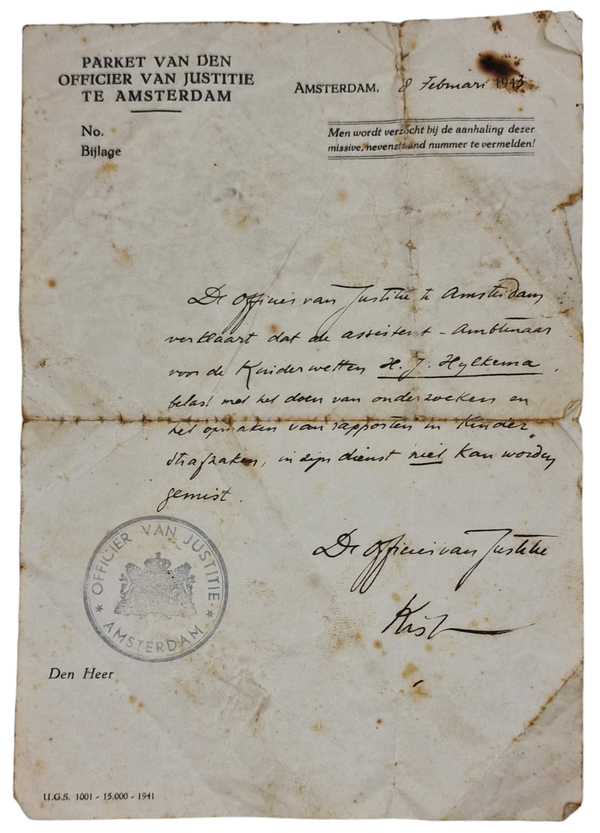 PARKET VAN DEN
OFFICIER VAN JUSTITIE
TE AMSTERDAM
AMSTERDAM, 8 Februari 1943
No.
Bijlage
Men wordt verzocht bij de aanhaling dezer
missive, nevenstaand nummer te vermelden!
De Officier van Justitie te Amsterdam
verklaart dat de assistent-Ambtenaar
voor de Kinderwetten H. J. Hylkema,
belast met het doen van onderzoeken en
het opmaken van rapporten in Kinder
strafzaken, in zijn dienst niet kan worden
gemist.
De Officier van Justitie
OFFICIER VAN JUSTITIE
* AMSTERDAM *
Den Heer
U.G.S. 1001 - 15.000 - 1941